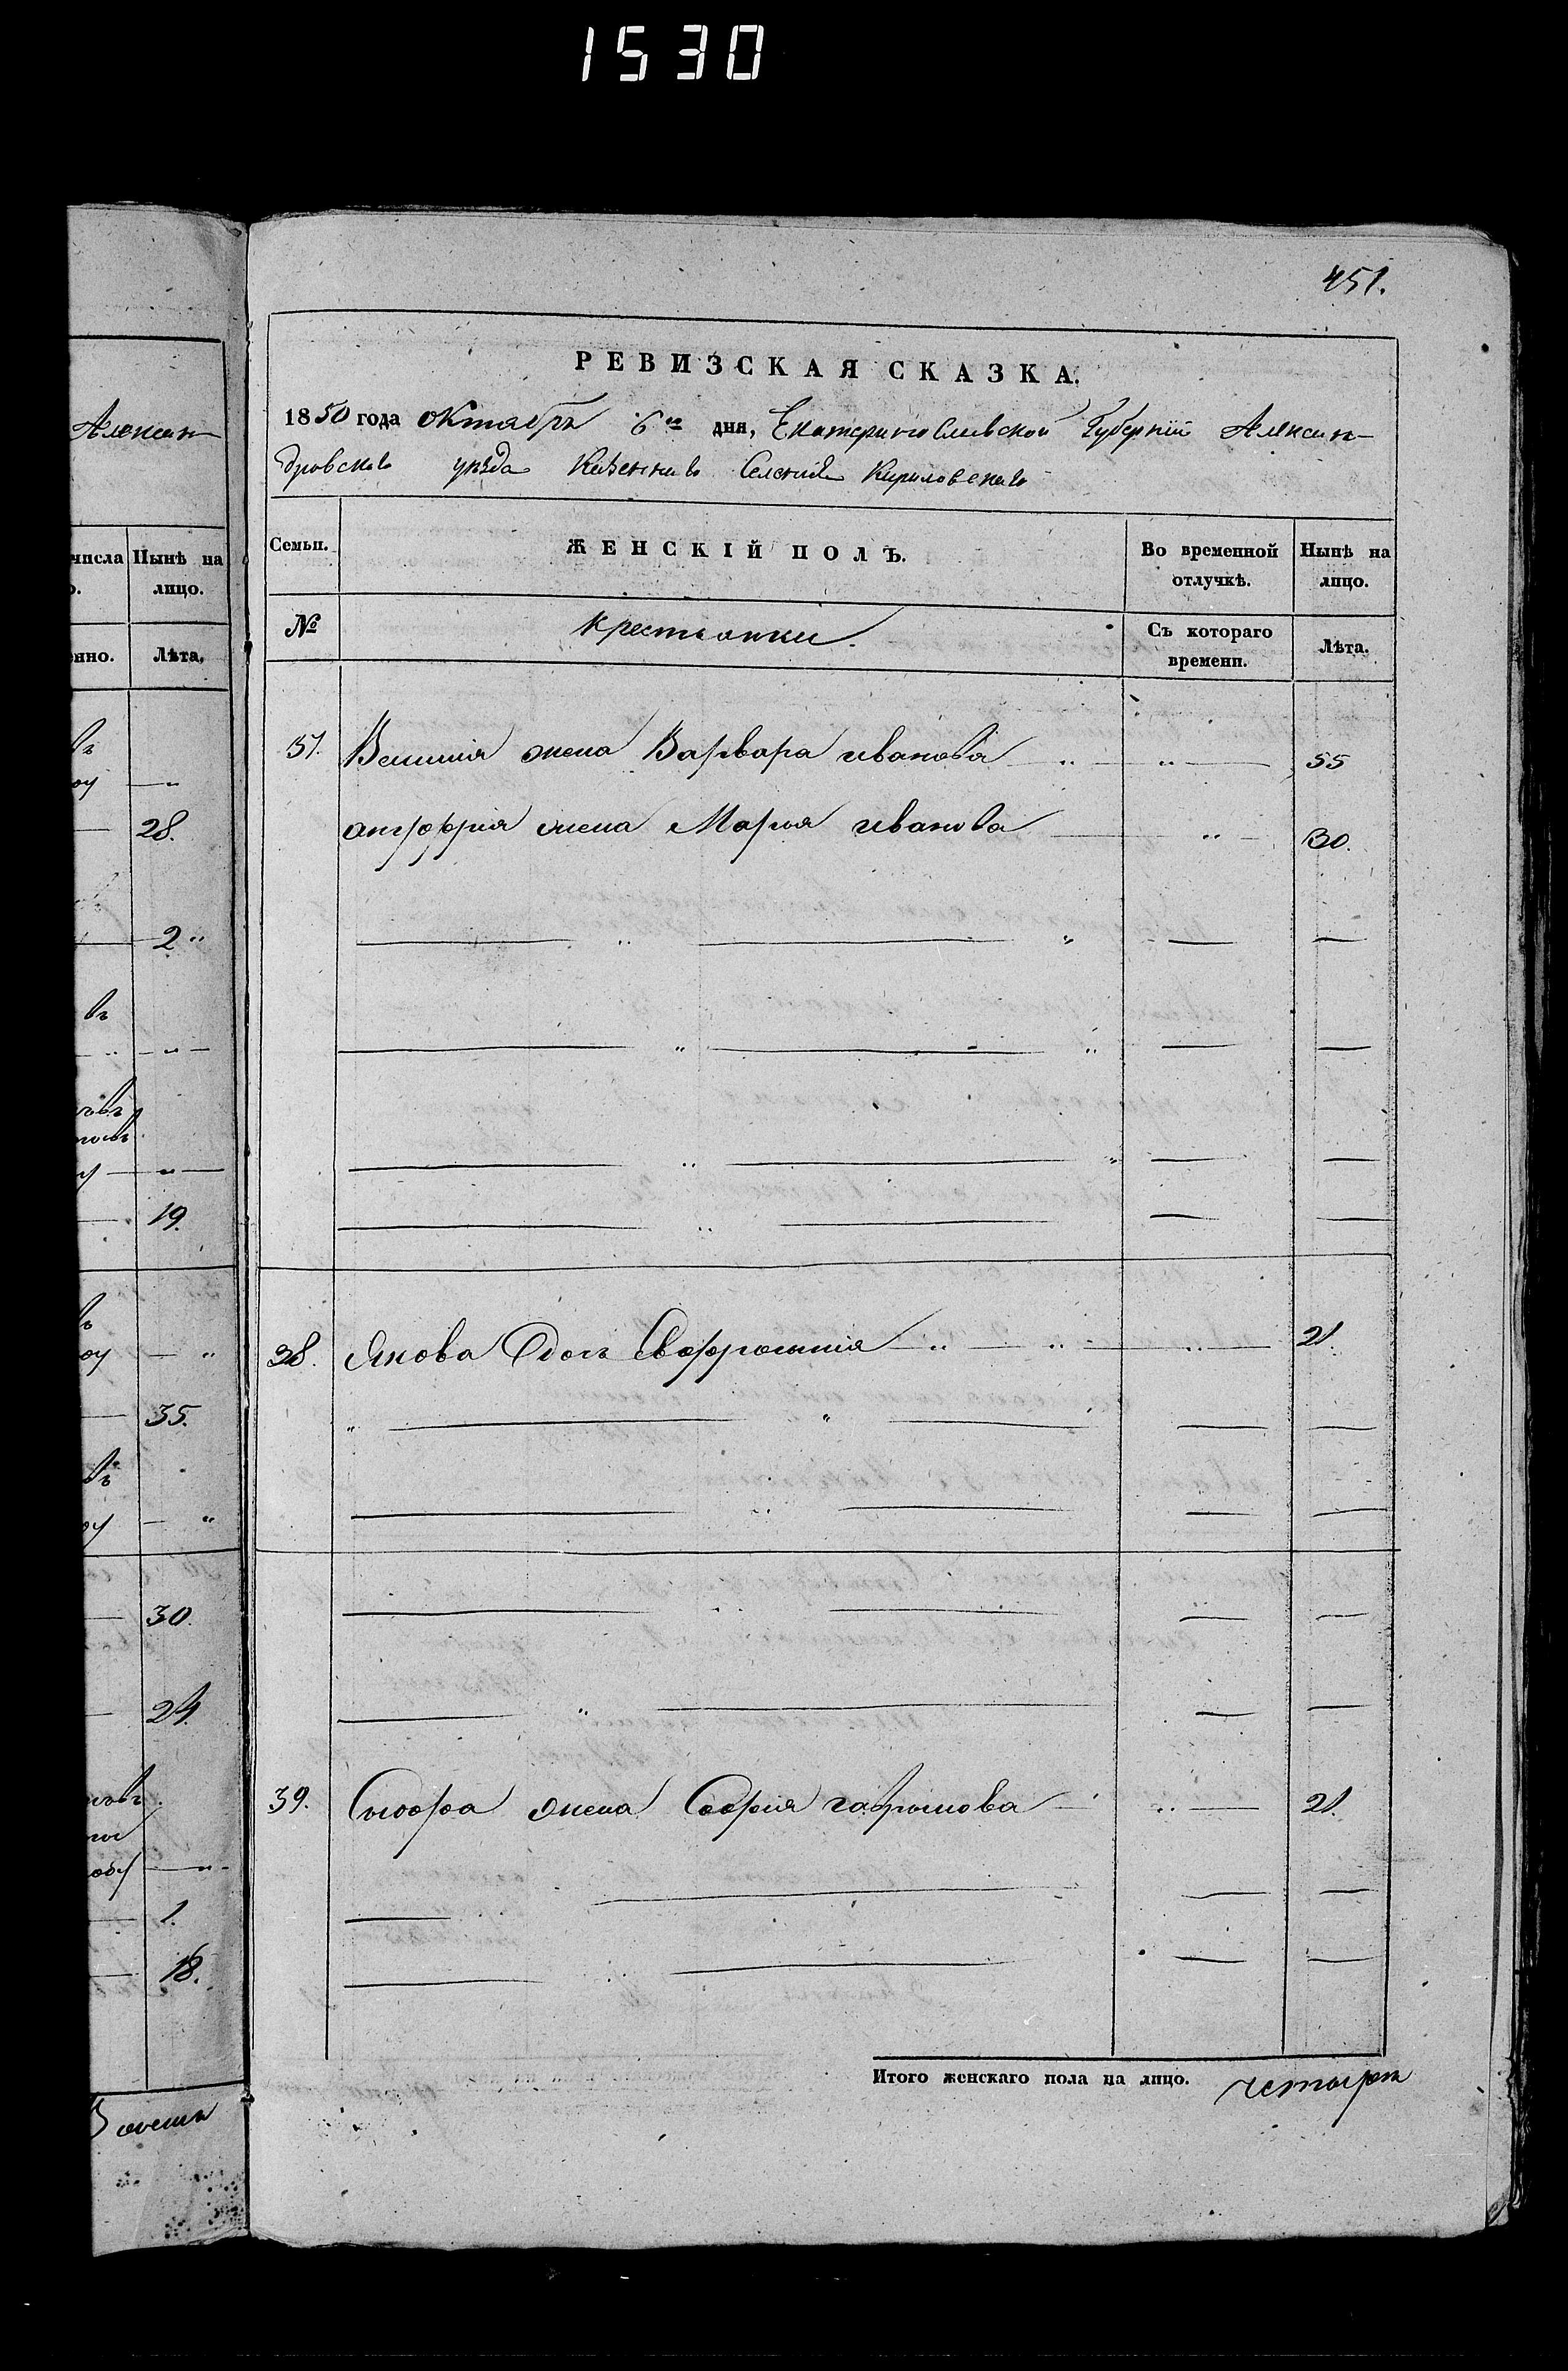 1530
Алексан-
числа Нынѣ на
о. лицо.
енно. Лѣта.
въ
оу — "
28.
2 "
въ
— " —
у — " —
19.
оу — "
35.
въ
оу — "
30.
24.
— "
1.
18.
451.
РЕВИЗСКАЯ СКАЗКА.
1850 года октября 6го дня, Екатеринославской Губернии Алексан-
дровскаго уезда Казеннаго Селения Кириловскаго
Семьи. ЖЕНСКІЙ ПОЛЪ. Во временной отлучкѣ. Нынѣ на лицо.
№ Крестьянки. Съ котораго времени. Лѣта.
37. жена Варвара иванова " 55
жена Мария иванова " 30.
38. Якова Дочь Евфросиния " 21.
39. Сидора жена София гаврилова " 21.
Итого женскаго пола на лицо. четыре